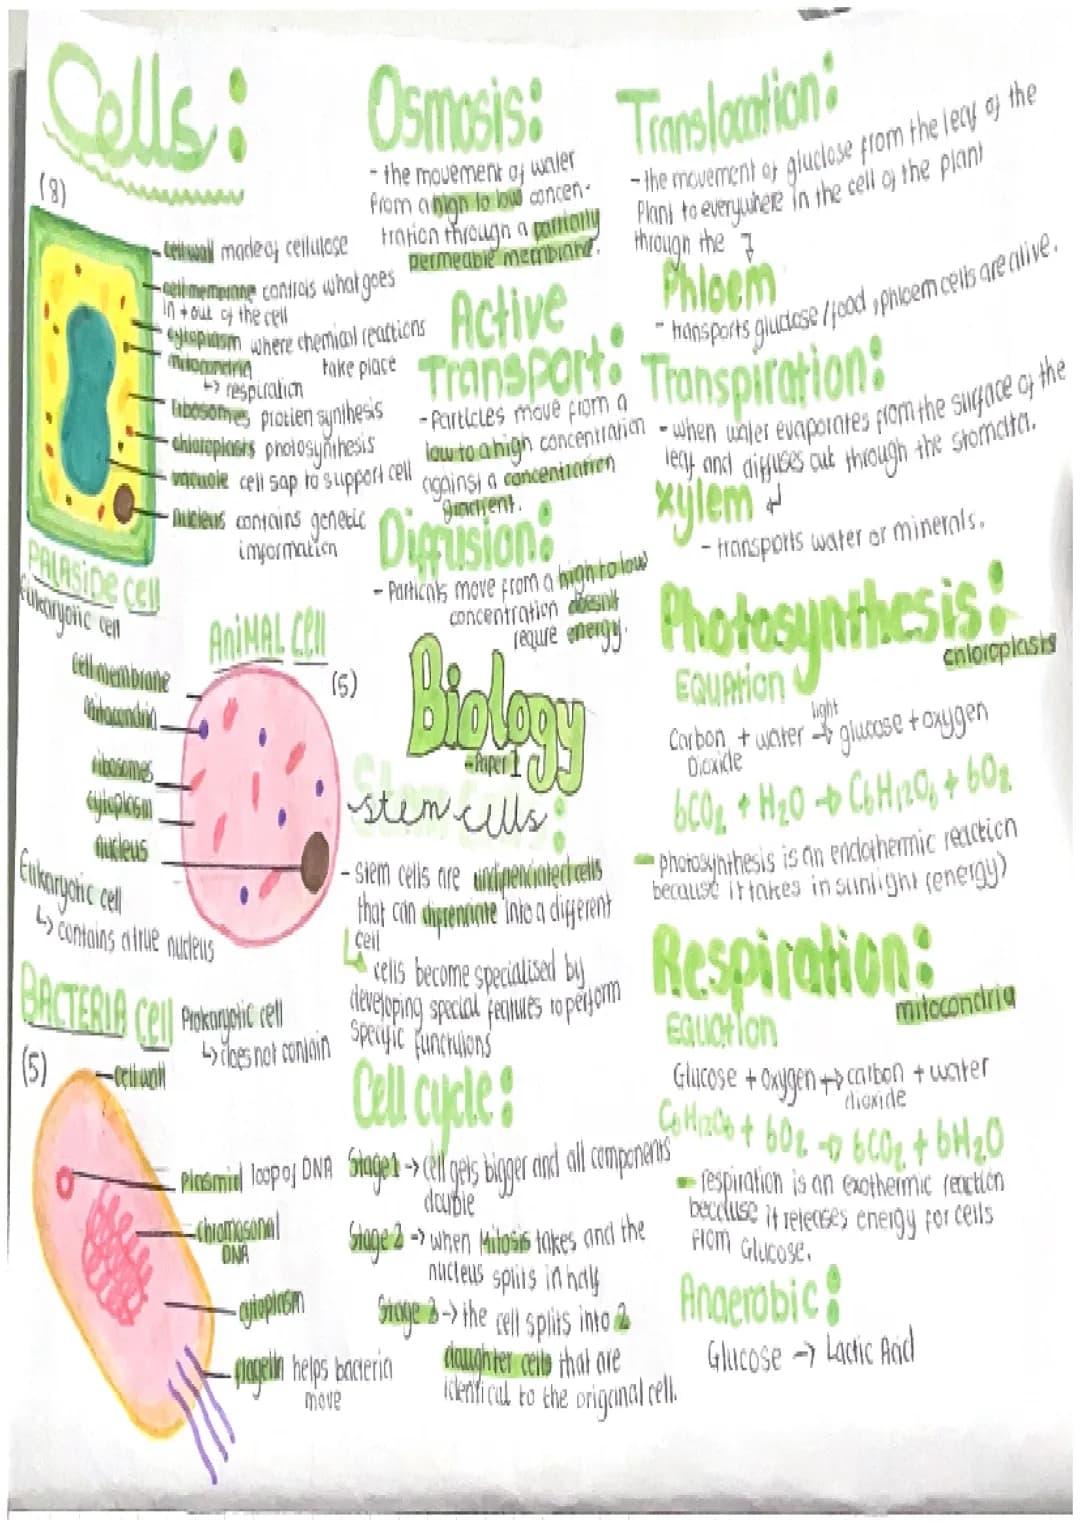 Cells:
(8)
cell wall made of cellulose
cell membrane controls what goes
in + out of the cell
cytoplasm where chemical reactions
take place
mitocondria
↳ respiration
ribosomes protien synthesis
chloroplasts photosynthesis
vacuole cell sap to support cell
nucleus contains genetic
information
PALASIDE CELL
Eukaryotic cell
ANIMAL CELL
(5)
Cell membrane
mitocondria
ribosomes
cytoplasm
nucleus
Eukaryotic cell
↳ contains a true nucleus
BACTERIA CELL
Prokaryotic cell
↳ does not contain
(5)
cell wall
plasmid loop of DNA
chromosonal
DNA
cytoplasm
flagella helps bacteria
move
Osmosis:
- the movement of water
from a high to low concen-
tration through a partially
permeable membrane.
Active
Transport:
- Particles move from a
low to a high concentration
against a concentration
gradient.
Diffusion:
- Particals move from a high to low
concentration doesn't
require energy.
Biology
- Paper 1
stem cells:
- Stem cells are undifferenciated cells
that can differenciate into a different
cell
↳ cells become specialised by
developing special features to perform
specific functuions
Cell cycle:
Stage 1 → cell gets bigger and all components
double
Stage 2 → when Mitosis takes and the
nucleus splits in half
Stage 3 → the cell splits into 2
daughter cells that are
identical to the original cell.
Translocation:
- the movement of gluclose from the leaf of the
Plant to everywhere in the cell of the plant
through the ↴
Phloem
- transports gluclose / food, phloem cells are alive.
Transpiration:
- when water evaporates from the surface of the
leaf and diffuses out through the stomata.
xylem ↲
- transports water or minerals.
Photosynthesis:
chloroplasts
EQUATION
light
Carbon + water → glucose + oxygen
Dioxide
6CO₂ + H₂O → C6H12O6 + 6O₂
- photosynthesis is an endothermic reaction
because it takes in sunlight (energy)
Respiration:
mitocondria
EQUATION
Glucose + oxygen → carbon + water
dioxide
C6H12O6 + 6O₂ → 6CO₂ + 6H₂O
- respiration is an exothermic reaction
because it releases energy for cells
from Glucose.
Anaerobic:
Glucose → Lactic Acid